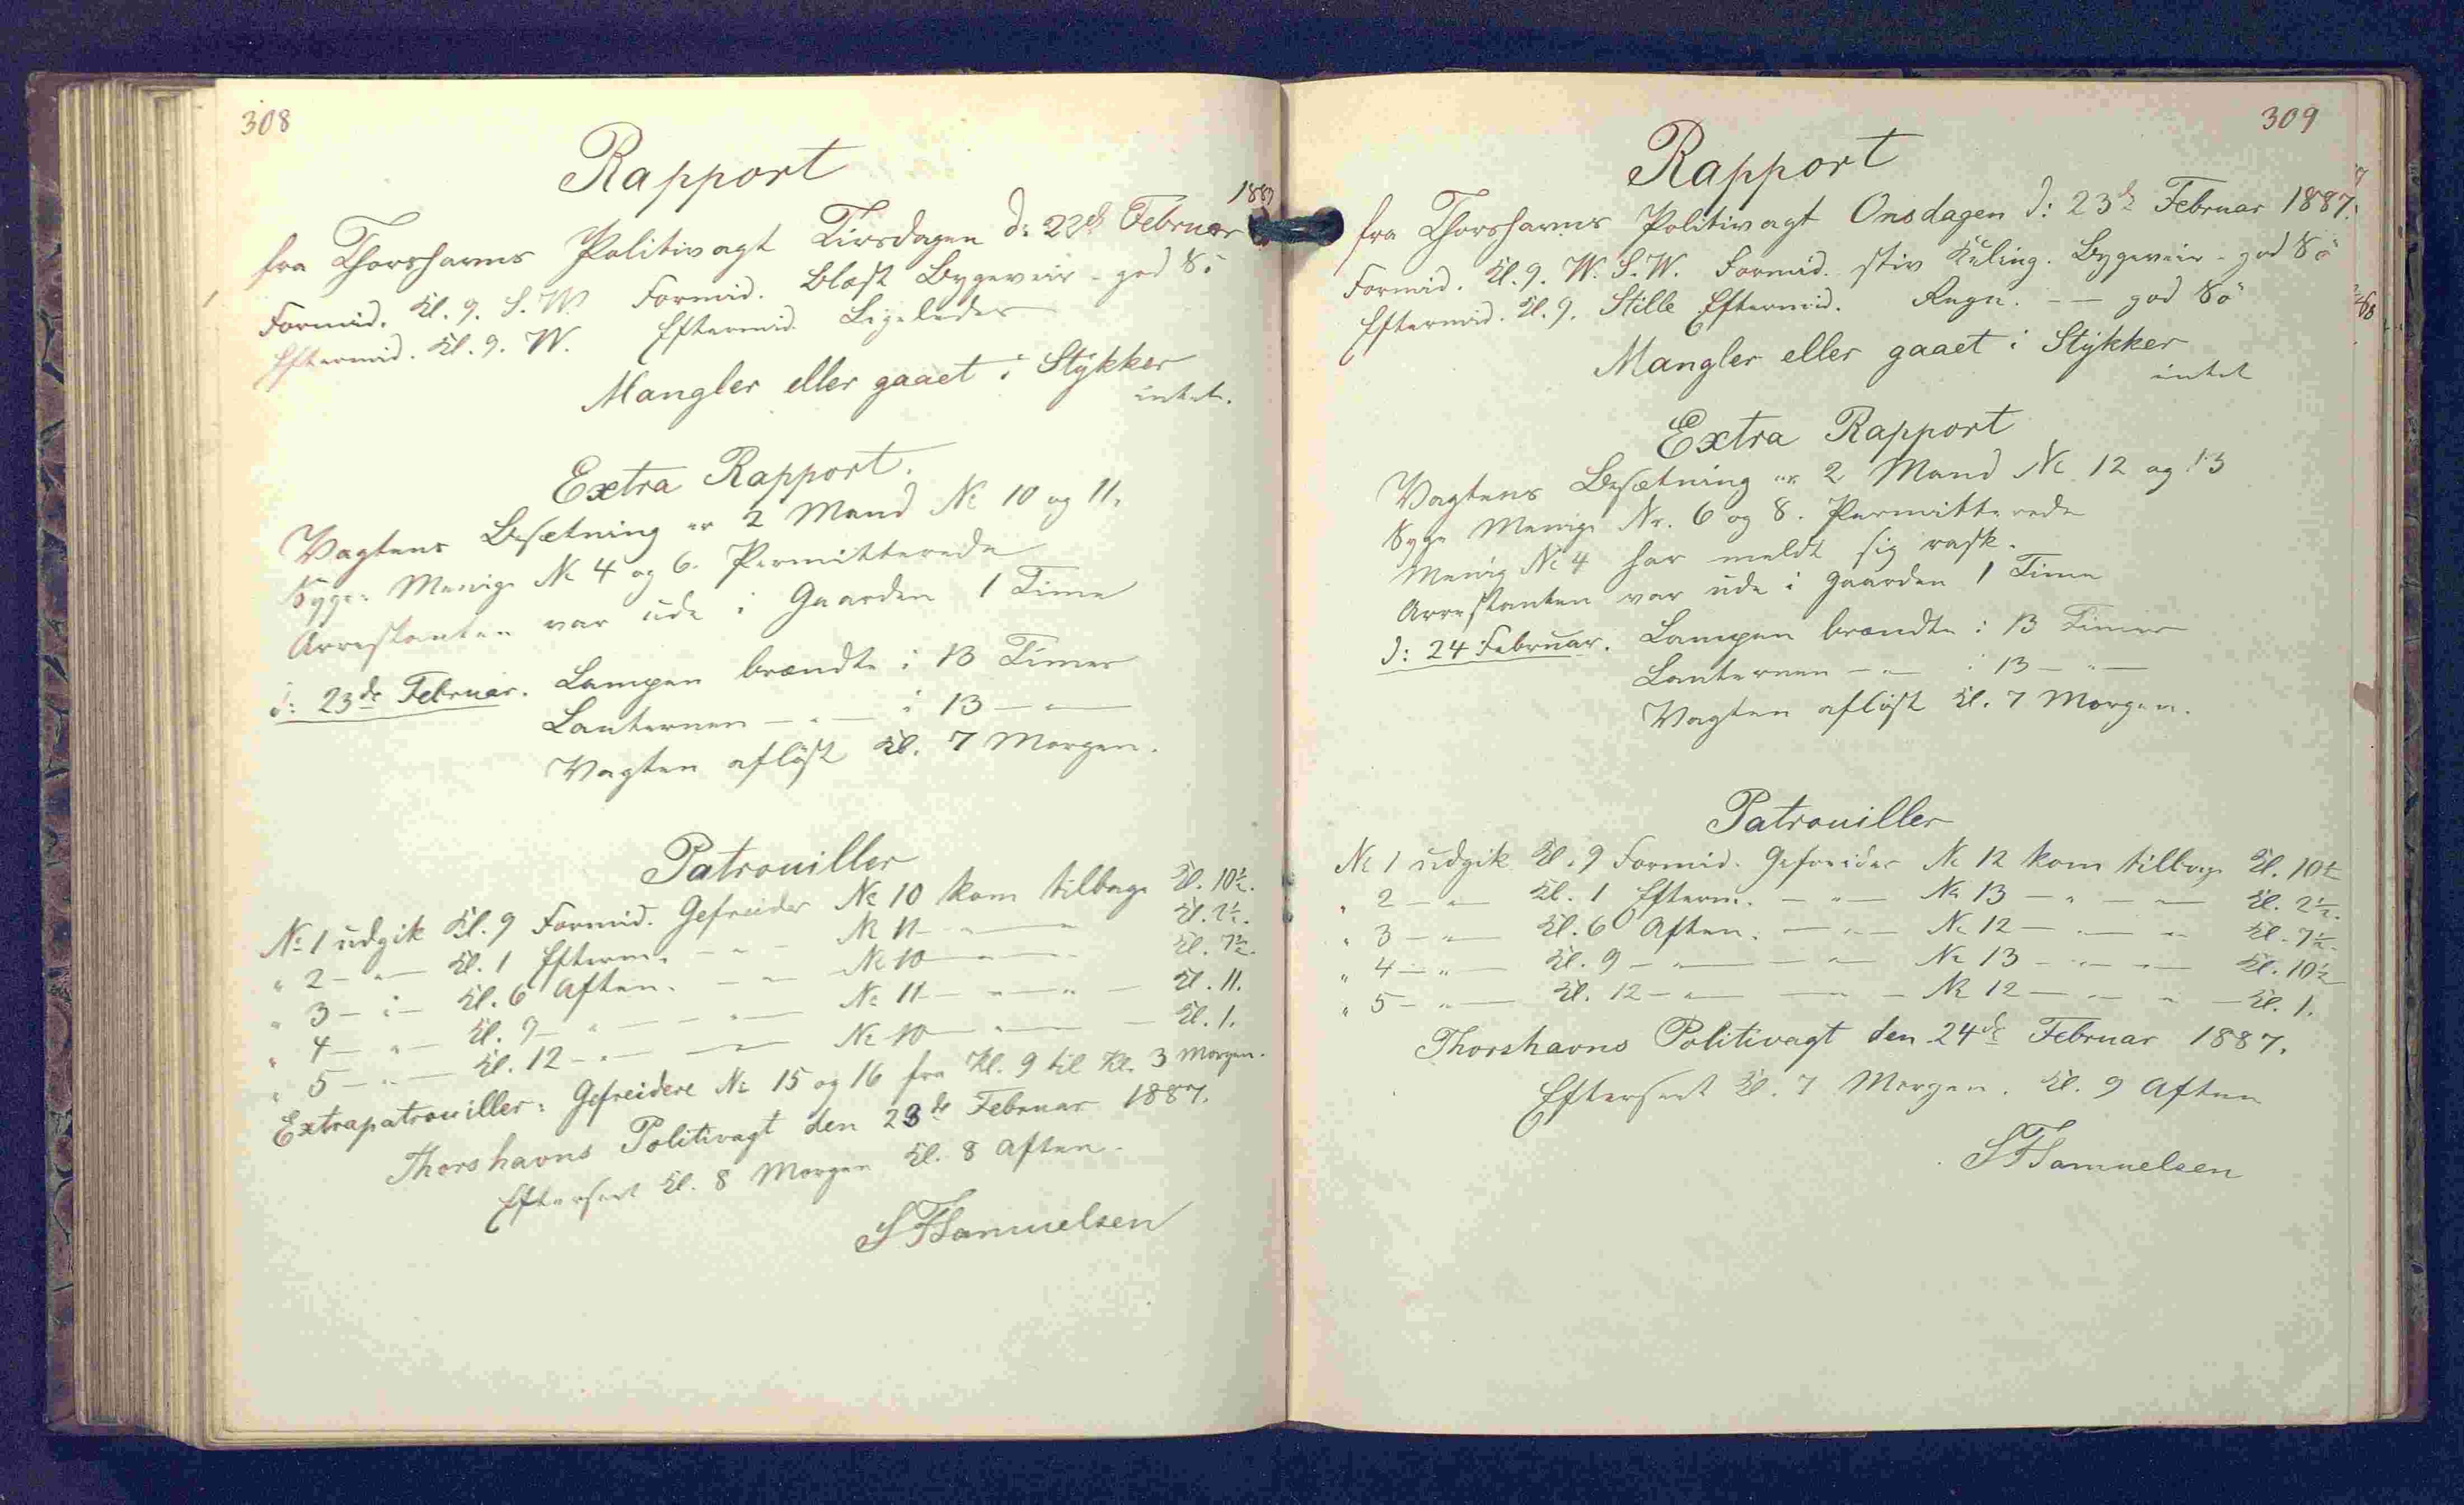 308
Rapport
1887
fra Thorshavns Politivagt Tirsdagen d: 22de Februar
Formid. Kl. 9. S. W. Formid. Blæst Bygeveir - god Sö
Eftermid. Kl. 9. W. Eftermid. Ligeledes
Mangler eller gaaet i Stykker
intet.
Extra Rapport.
Vagtens Besætning er 2 Mand No 10 og 11.
Syge: Menige No 4 og 6. Permitterede
Arrestanten var ude i Gaarden 1 Time
d: 23de Februar. Lampen brændte i 13 Timer
Lanternen — " — i 13 — " —
Vagten aflöst Kl. 7 Morgen.
Patrouiller
No 1 udgik Kl. 9 Formid. Gefreider No 10 kom tilbage Kl. 10½.
" 2 — " — Kl. 1 Efterm. — " — No 11 — " — Kl. 2½.
" 3 — " — Kl. 6 Aften. — " — No 10 — " — Kl. 7½.
" 4 — " — Kl. 9 — " — — " — No 11 — " — " — Kl. 11.
" 5 — " — Kl. 12 — " — — " — No 10 — " — Kl. 1.
Extrapatrouiller: Gefreidere No 15 og 16 fra Kl. 9 til Kl. 3 Morgen.
Thorshavns Politivagt den 23de Februar 1887.
Efterseet Kl. 8 Morgen Kl. 8 Aften.
SFSamuelsen
309
Rapport
fra Thorshavns Politivagt Onsdagen d: 23de Februar 1887.
Formid. Kl. 9. W. S. W. Formid. stiv Kuling. Bygeveir - god Sö
Eftermid. Kl. 9. Stille Eftermid. Regn. — — god Sö
Mangler eller gaaet i Stykker
intet
Extra Rapport
Vagtens Besætning er 2 Mand No 12 og 13
Syge Menige Nr. 6 og 8. Permitterede
Menig No 4 har meldt sig rask.
Arrestanten var ude i Gaarden 1 Time
d: 24 Februar. Lampen brændte i 13 Timer
Lanternen — " — i 13 — " —
Vagten aflöst Kl. 7 Morgen.
Patrouiller
No 1 udgik Kl. 9 Formid. Gefreider No 12 kom tilbage Kl. 10½
" 2 — " — Kl. 1 Efterm. — " — No 13 — " — " — Kl. 2½.
" 3 — " — Kl. 6 Aften. — " — No 12 — " — " Kl. 7½.
" 4 — " — Kl. 9 — " — — " — No 13 — " — " — Kl. 10½
" 5 — " — Kl. 12 — " — — " — No 12 — " — " — Kl. 1.
Thorshavns Politivagt den 24de Februar 1887.
Efterseet Kl. 7 Morgen. Kl. 9 Aften
SFSamuelsen